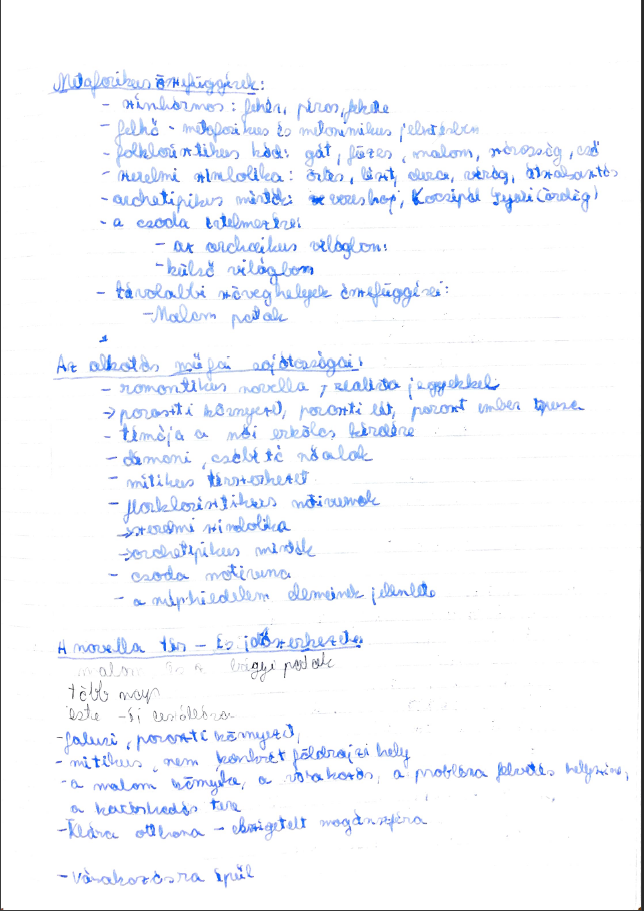 Metaforikus összefüggések:
- színhármas: fehér, piros, fekete
- felhő - metaforikus és metonimikus jelentésben
- folklorisztikus kód: gát, füzes, malom, szárosság, cső
- szerelmi szimbolika: őrlés, liszt, derce, virág,
- archetipikus minták: vereshaj, Kocsipál Gyuri (ördög)
- a csoda értelmezése:
- az archaikus világban:
- külső világban
- távolabbi szöveghelyek összefüggései:
- Malom patak
Az alkotás műfai sajátosságai:
- romantikus novella, realista jegyekkel
→ paraszti környezet, paraszti lét, paraszt ember típusa
- témája a női erkölcs kérdése
- démoni, csábító nőalak
- mitikus térszerkezet
- florklorisztikus motívumok
→ szerelmi szimbolika
→ archetipikus minták
- csoda motívuma
- a néphiedelem elemeinek jelenléte
A novella tér - és időszerkezete
malom és a bágyi patak
több nap
este - éj leszállása
- falusi, paraszti környezet,
- mitikus, nem konkrét földrajzi hely
- a malom környéke, a várakozás, a probléma felvetés helyszíne,
a kíváncsiskodás tere
- Klára otthona - elszigetelt magánszféra
- várakozásra épül